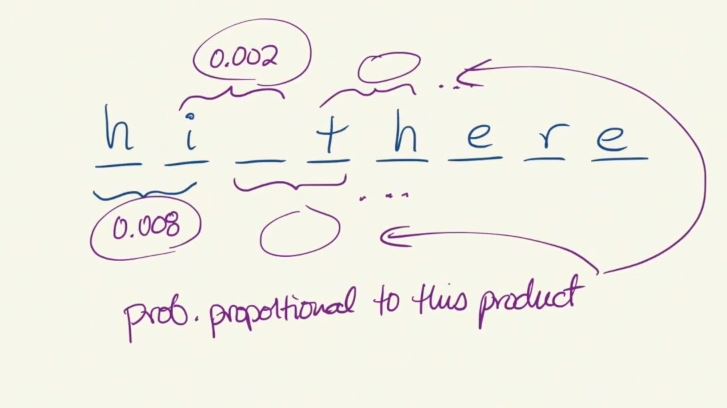 0.002
...
h i _ t h e r e
...
0.008
prob. proportional to this product